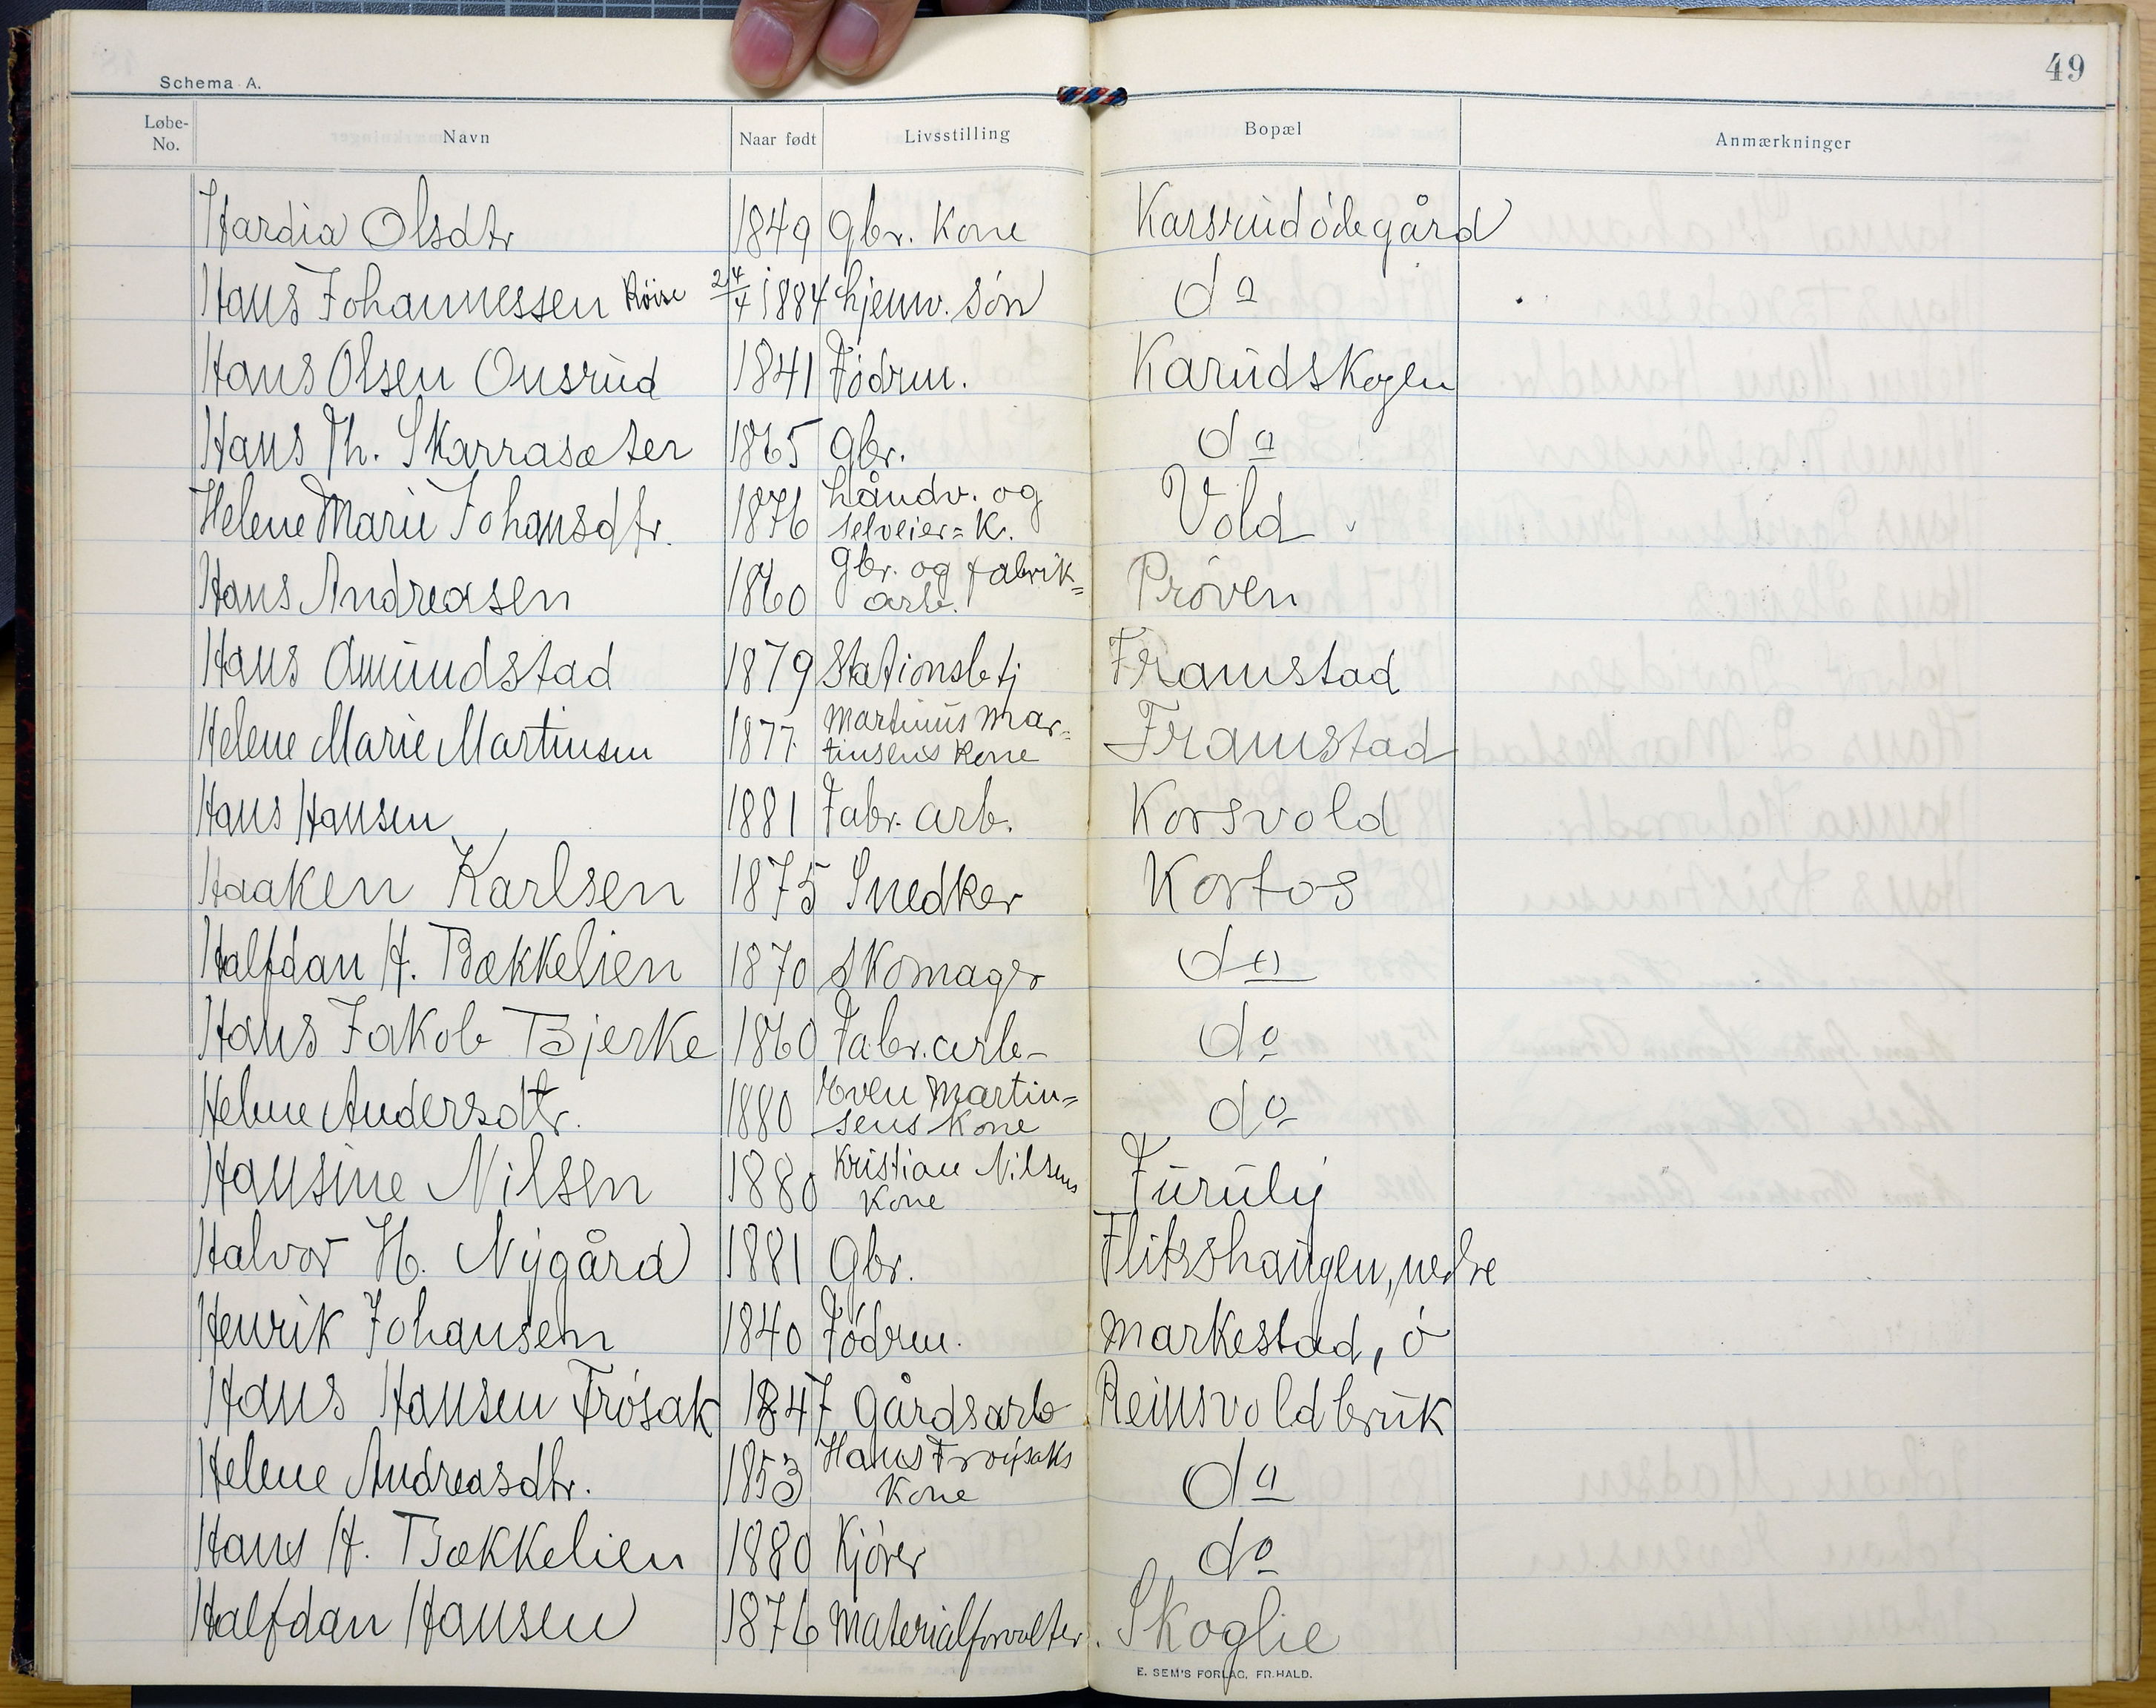 49
Schema A.
Løbe-No. Navn Naar født Livsstilling Bopæl Anmærkninger
Hardia Olsdtr 1849 gbr. Kone Karsrudødegård
Hans Johannessen Røise 24/4 1884 hjemv. søn do
Hans Olsen Onsrud 1841 Födrm. Karudskogen
Hans Th. Skarrasæter 1865 gbr. do
Helene Marie Johansdtr. 1876 håndv. og selveier=K. Vold
Hans Andreasen 1860 gbr. og fabrik=arb. Prøven
Hans Amundstad 1879 Stationsbetj Framstad
Helene Marie Martinsen 1877 Martinus Mar=tinsens Kone Framstad
Hans Hansen 1881 Fabr. arb. Korsvold
Haaken Karlsen 1875 Snedker Korfos
Halfdan H. Bækkelien 1870 Skomager do
Hans Jakob Bjerke 1860 Fabr. arb- do
Helene Andersdtr. 1880 Even Martin=sens Kone do
Hansine Nilsen 1880 Kristian Nilsens Kone Furuly
Halvor H. Nygård 1881 Gbr. Flitshaugen, nedre
Henrik Johansen 1840 Födrm. Markestad, ö
Hans Hansen Frösak 1847 Gårdsarb Reinsvoldbruk
Helene Andreasdtr. 1853 Hans Fröysaks Kone do
Hans H. Bækkelien 1880 Kjører do
Halfdan Hansen 1876 Materialforvalter. Skoglie
E. SEM'S FORLAG, FR.HALD.